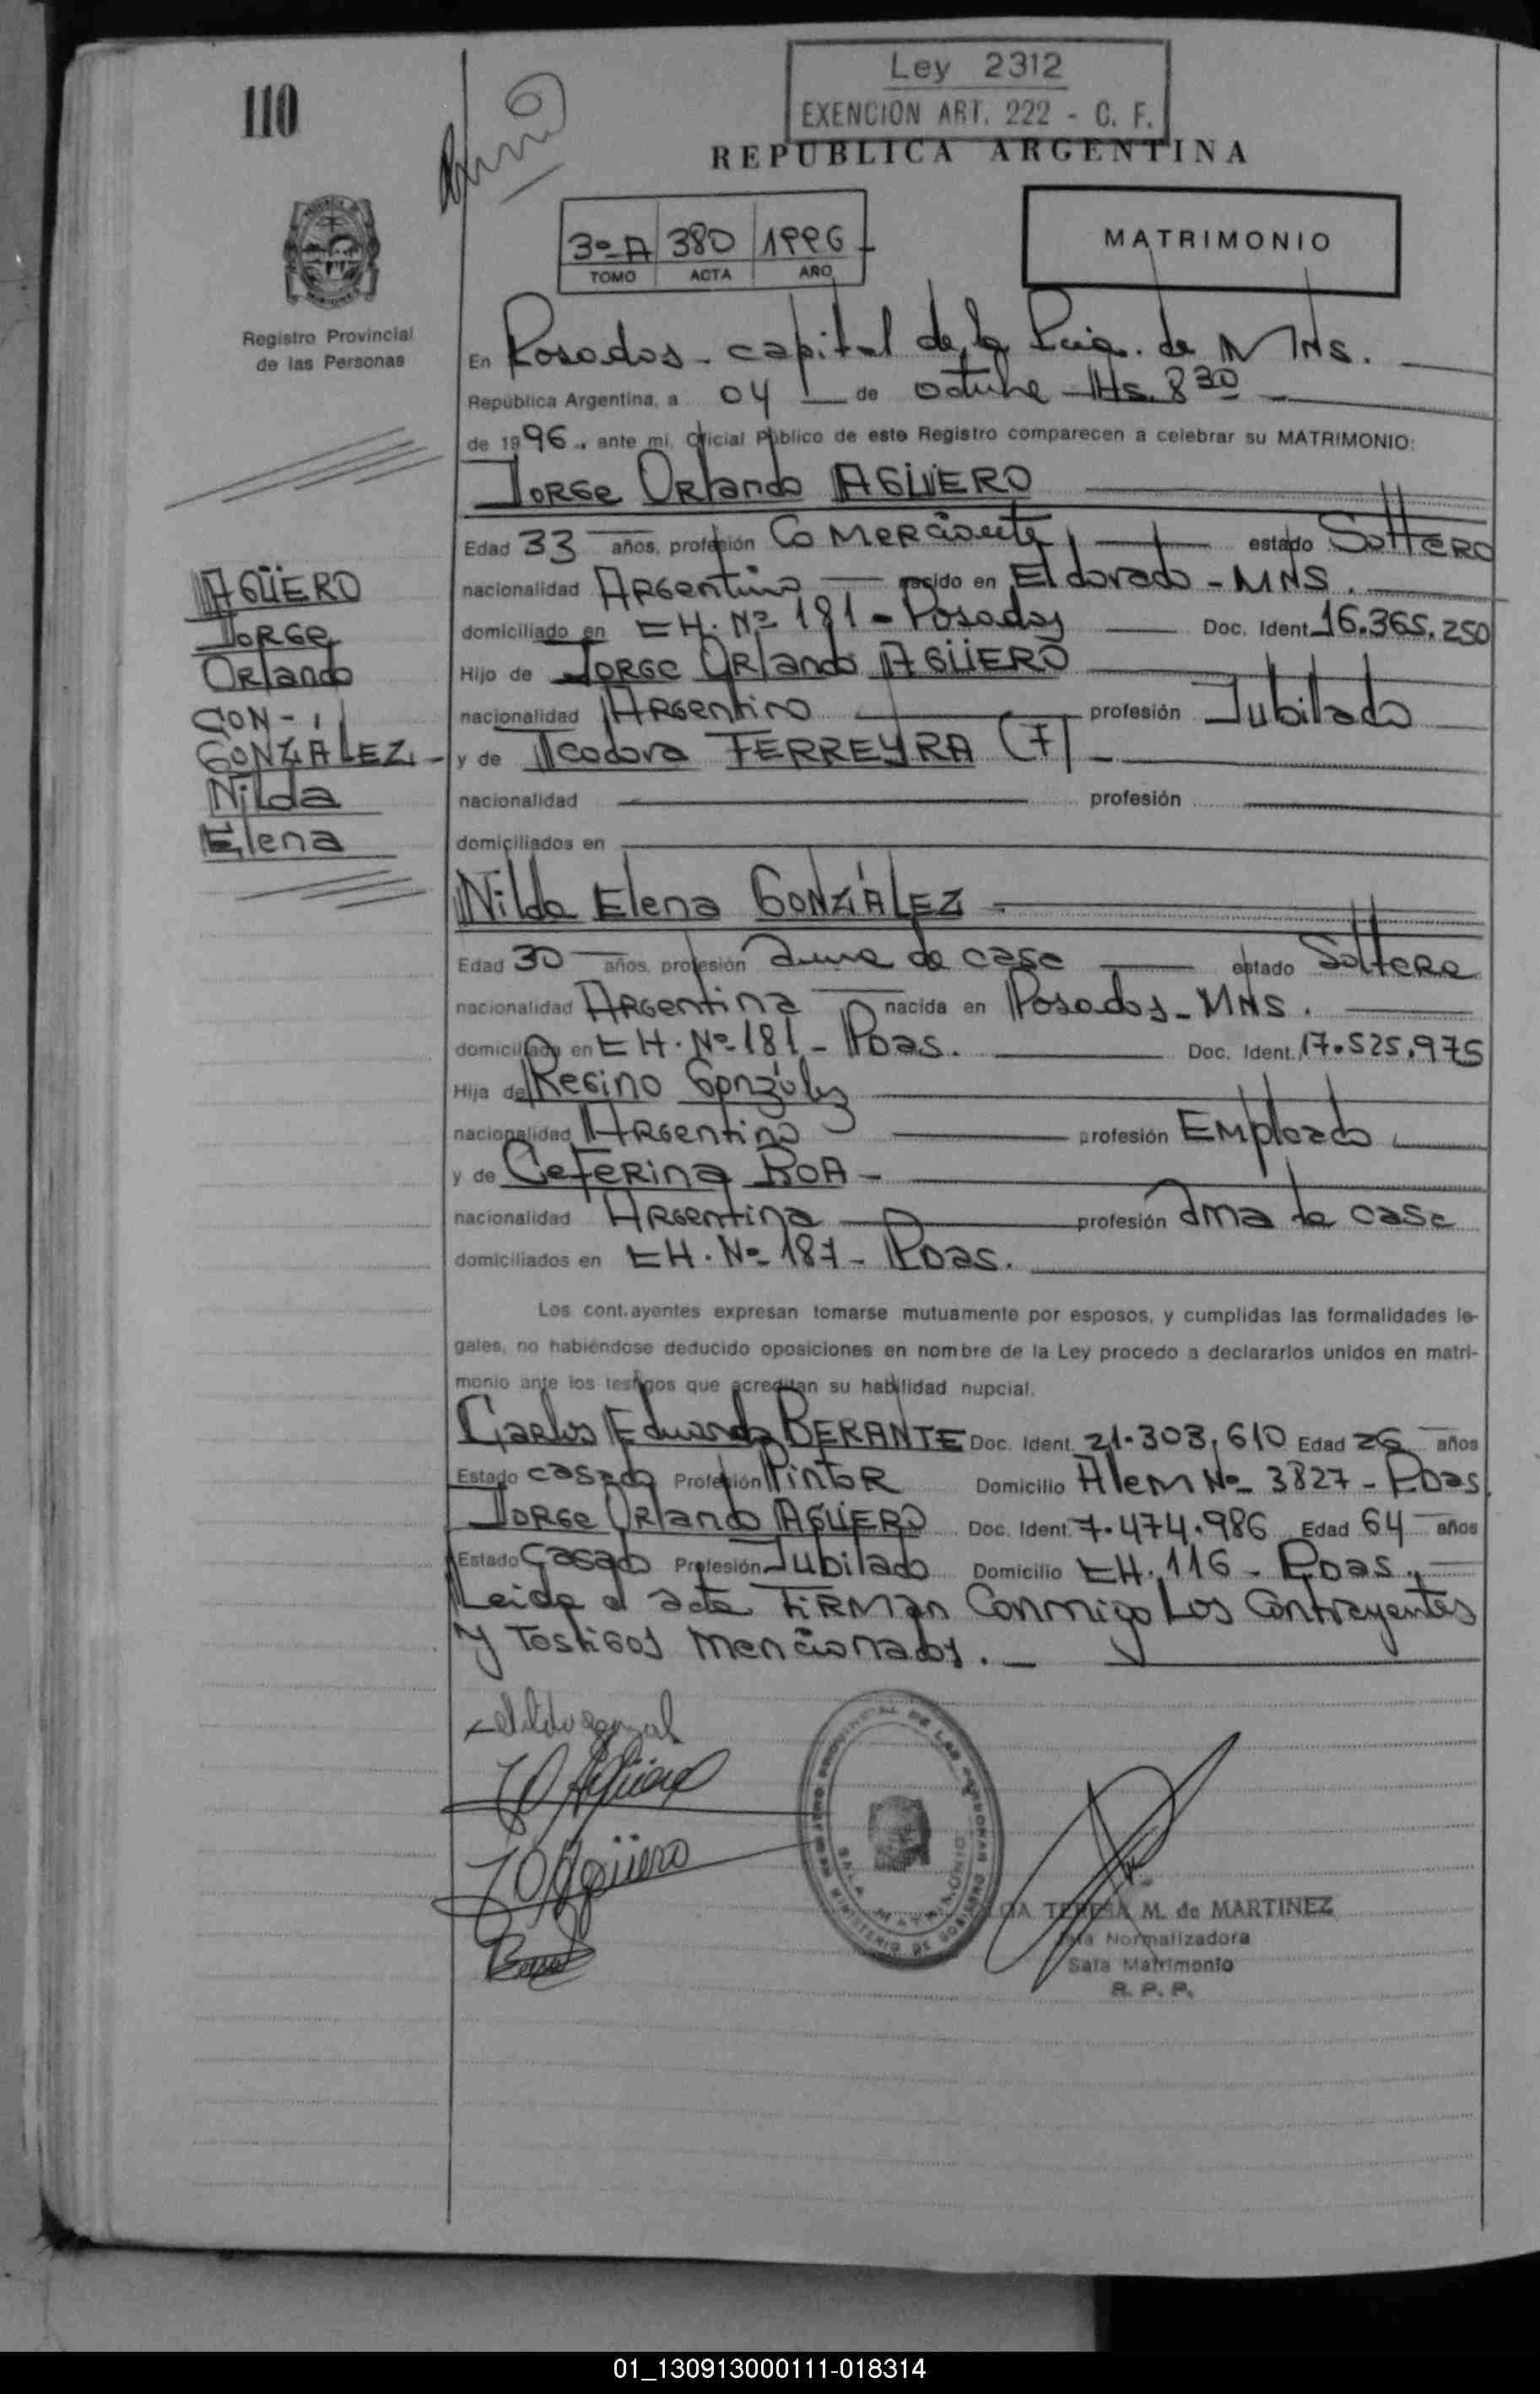 110
Ley 2312
EXENCION ART. 222 - C. F.
REPUBLICA ARGENTINA
3º-A 380 1996
TOMO ACTA AÑO
MATRIMONIO
Registro Provincial
de las Personas
En Posadas - capital de la Pcia. de MNS.
República Argentina, a 04 de octubre Hs. 8 30
de 1996., ante mi, Oficial Público de este Registro comparecen a celebrar su MATRIMONIO:
Jorge Orlando AGÜERO
Edad 33 años, profesión Comerciante estado Soltero
nacionalidad Argentino nacido en Eldorado - MNS.
domiciliado en CH. Nº 181 - Posadas Doc. Ident. 16.365.250
Hijo de Jorge Orlando AGÜERO
nacionalidad Argentino profesión Jubilado
y de Teodora FERREYRA (F)
nacionalidad profesión
domiciliados en
AGÜERO
Jorge
Orlando
CON -
GONZÁLEZ
Nilda
Elena
Nilda Elena GONZÁLEZ
Edad 30 años, profesión ama de casa estado Soltera
nacionalidad Argentina nacida en Posadas - MNS.
domiciliada en CH. Nº 181 - Pdas. Doc. Ident. 17.525.975
Hija de Regino González
nacionalidad Argentino profesión Empleado
y de Ceferina BOA -
nacionalidad Argentina profesión ama de casa
domiciliados en CH. Nº 187 - Pdas.
Los contrayentes expresan tomarse mutuamente por esposos, y cumplidas las formalidades le-
gales, no habiéndose deducido oposiciones en nombre de la Ley procedo a declararlos unidos en matri-
monio ante los testigos que acreditan su habilidad nupcial.
Carlos Eduardo BERANTE Doc. Ident. 21.303.610 Edad 26 años
Estado casado Profesión Pintor Domicilio Alem Nº 3827 - Pdas
Jorge Orlando AGÜERO Doc. Ident. 7.474.986 Edad 64 años
Estado Casado Profesión Jubilado Domicilio CH. 116 - Pdas.
Leida el acta Firman Conmigo Los Contrayentes
y Testigos mencionados.
JO Agüero
JO Agüero
SALA MATRIMONIO
MINISTERIO DE GOBIERNO
TERESA M. de MARTINEZ
Normalizadora
Sala Matrimonio
R. P. P.
01_130913000111-018314